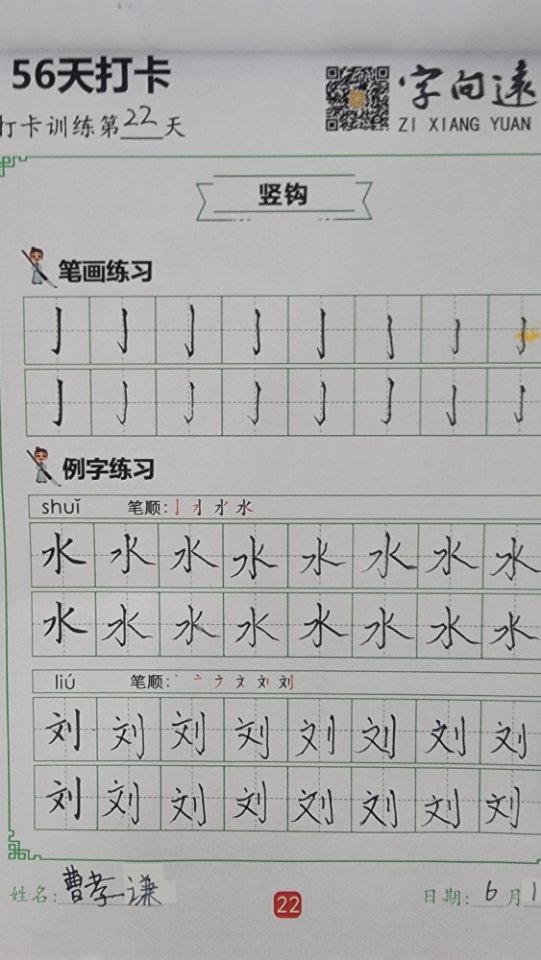 56天打卡
字向远
打卡训练第22天
ZI XIANG YUAN
竖钩
笔画练习
亅 亅 亅 亅 亅 亅 亅 亅
亅 亅 亅 亅 亅 亅 亅 亅
例字练习
shuǐ 笔顺:
水 水 水 水 水 水 水 水
水 水 水 水 水 水 水 水
liú 笔顺:
刘 刘 刘 刘 刘 刘 刘 刘
刘 刘 刘 刘 刘 刘 刘 刘
姓名: 曹孝谦 日期: 6月1
22